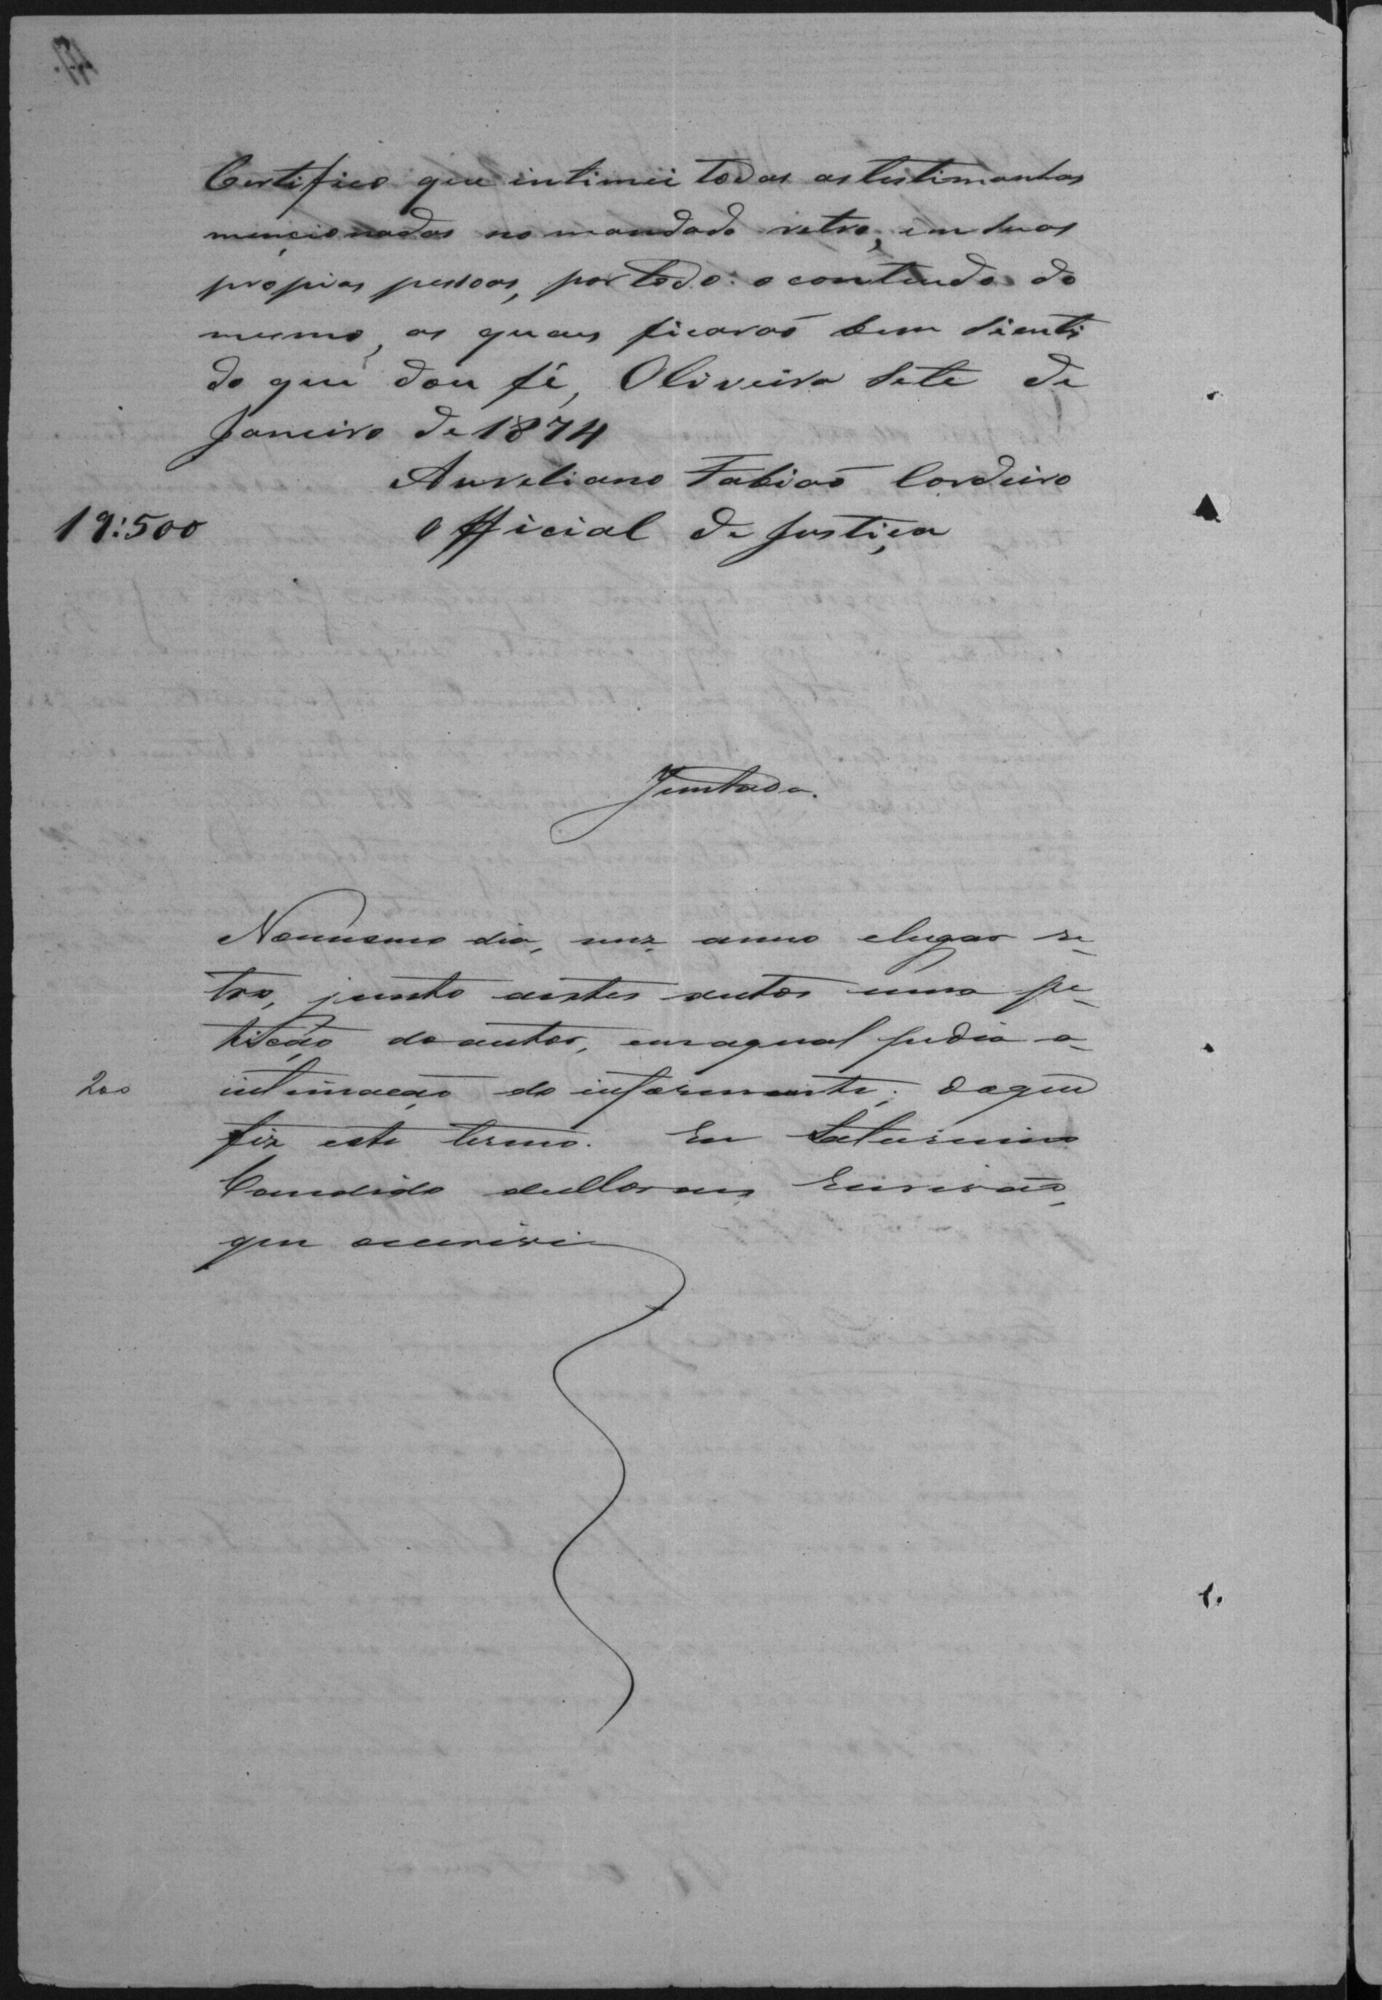 Certifico que intimei todas as testimonhas
mencionadas no mandado retro, em suas
propias pessoas, por todo o contiudo do
mesmo, as quaes ficarão bem sienti
do que dou fé, Oliveira sete de
Janeiro de 1874
Aureliano Fabião Cordeiro
19:500 Official de Justiça
Juntada.
No mesmo dia, mez anno e lugar re-
tro, junto a estes autos uma pe-
tisção do autor, em a qual pedia a
200 intimação do informante; do que
fiz este termo. Eu Saturnino
Candido de Moraes Escrivão,
que o escrivi